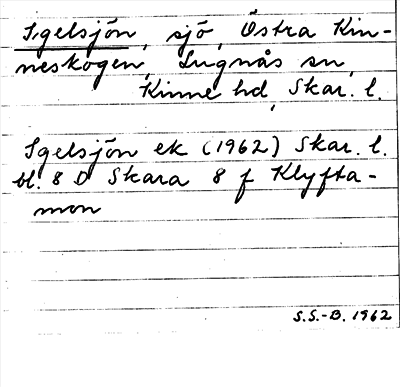 Igelsjön, sjö, Östra Kin-
neskogen, Lugnås sn,
Kinne hd, Skar. l.
Igelsjön ek (1962) Skar. l.
bl. 8 D Skara 8 f Klyfta-
mon
S.S.-B. 1962